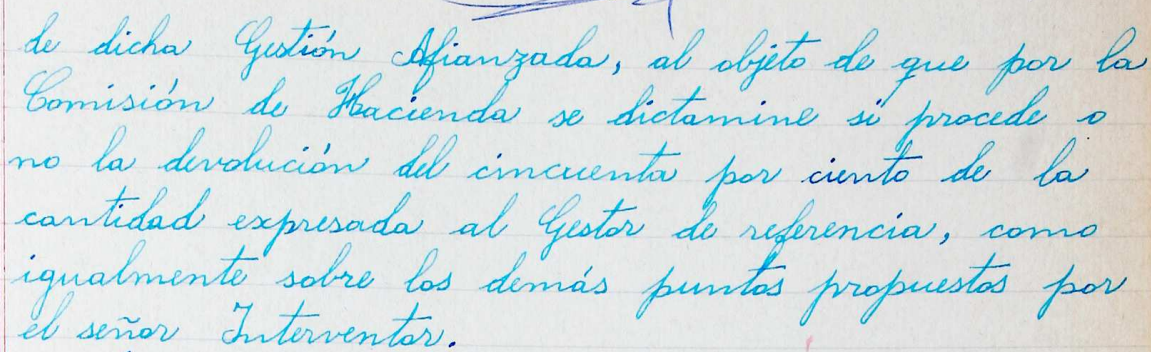 de dicha Gestión Afianzada, al objeto de que por la
Comisión de Hacienda se dictamine si procede o
no la devolución del cincuenta por ciento de la
cantidad expresada al Gestor de referencia, como
igualmente sobre los demás puntos propuestos por
el señor Interventor.